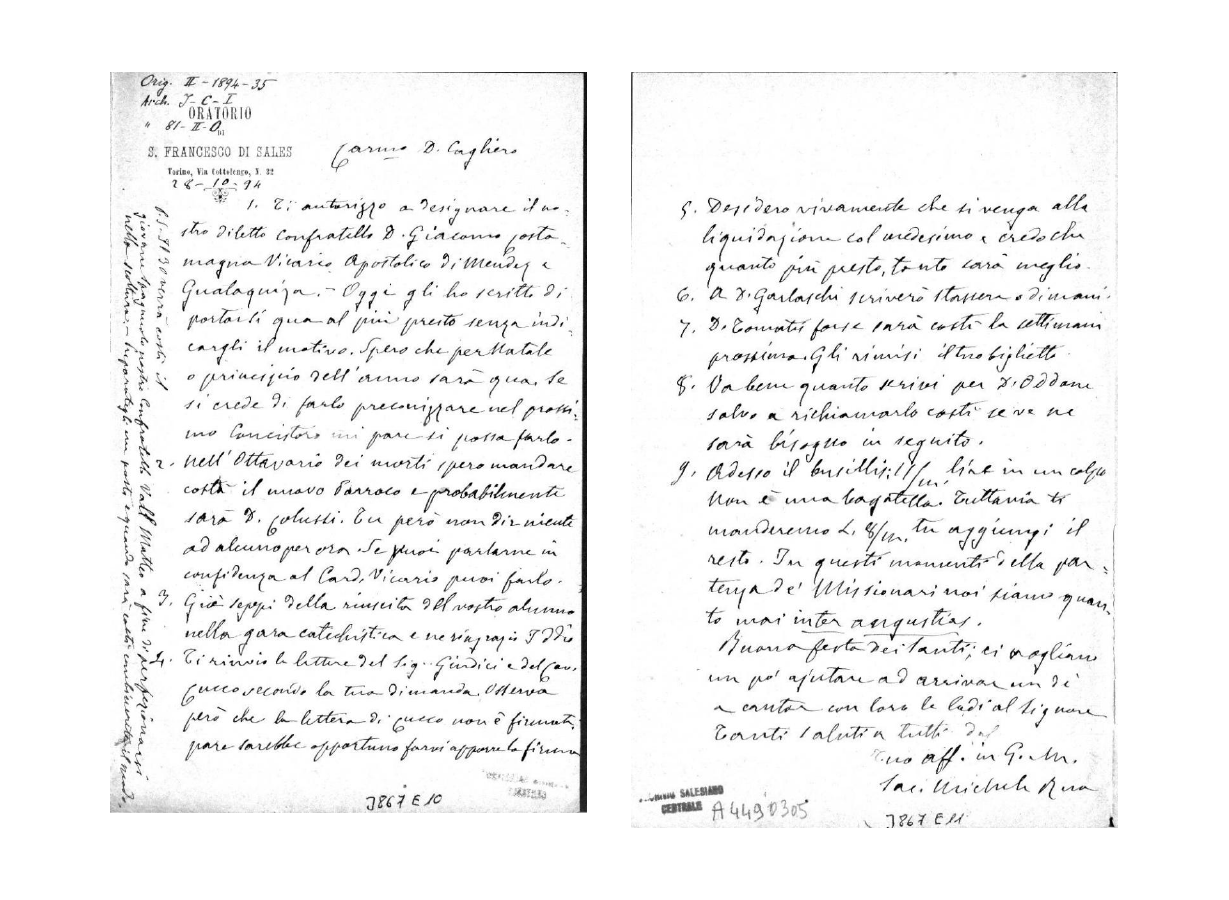 Orig. II - 1894 - 35
Arch. J - C - I
ORATORIO
" 81 - II - O
DI
S. FRANCESCO DI SALES
Torino, Via Cottolengo, N. 32
28-10-94
Carmo D. Cagliero
1. Ti autorizzo a designare il no-
stro diletto confratello D. Giacomo Costa-
magna Vicario Apostolico di Mendez e
Gualaquiza. - Oggi gli ho scritto di
portarsi qua al più presto senza indi
cargli il motivo. Spero che per Natale
o principio dell'anno sarà qua. Se
si crede di farlo preconizzare nel prossi-
mo Concistoro mi pare si possa farlo.
2. Nell'Ottavario dei morti spero mandare
costà il nuovo Parroco e probabilmente
sarà D. Colussi. Tu però non dir niente
ad alcuno per ora. Se puoi parlarne in
confidenza al Card. Vicario puoi farlo.
3. Già seppi della riuscita del vostro alunno
nella gara catechistica e ne ringrazio Iddio
4. Ti rinvio le lettere del Sig. Giudici e del Cav.
Cucco secondo la tua dimanda. Osserva
però che la lettera di Cucco non è firmata:
pare sarebbe opportuno farvi apporre la firma
P.S. Il 30 verrà costì il
giovane nostro Confratello Valle Matteo a fine di perfezionarsi
nella scultura: preparategli un posto e quando sarà costì
J867 E 10
5. Desidero vivamente che si venga alla
liquidazione col medesimo e credo che
quanto più presto, tanto sarà meglio.
6. A D. Garlaschi scriverò stassera o dimani.
7. D. Tomatis forse sarà costì la settimana
prossima. Gli rimisi il tuo biglietto.
8. Va bene quanto scrivi per D. Oddone
salvo a richiamarlo costì se ve ne
sarà bisogno in seguito.
9. Adesso il busillis: 11/m lire in un colpo
Non è una bagatella. Tuttavia ti
manderemo L. 8/m, tu aggiungi il
resto. In questi momenti della par-
tenza de' Missionari noi siamo quan-
to mai inter angustias.
Buona festa dei Santi; ci vogliano
un po' aiutare ad arrivar un dì
a cantar con loro le lodi al Signore
Tanti saluti a tutti dal
tuo aff. in G. M.
Sac. Michele Rua
ARCHIVIO SALESIANO
CENTRALE
A4490305
J867 E 11